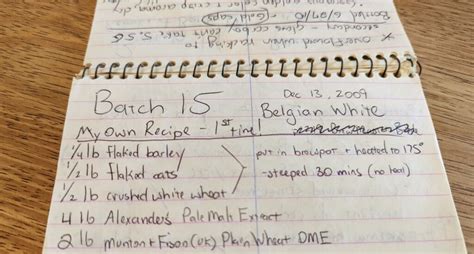 * Overflowed when racking to
secondary - glass carboy can't take 5.5 G
Bottled 6/19/10 - Gold caps
Batch 15
Dec 13, 2009
Belgian White
My Own Recipe - 1st time!
1/4 lb flaked barley
1/2 lb flaked oats
1/2 lb crushed white wheat
put in brewpot + heated to 175°
- steeped 30 mins (no heat)
4 lb Alexanders Pale Malt Extract
2 lb Munton + Fison (UK) Plain Wheat DME